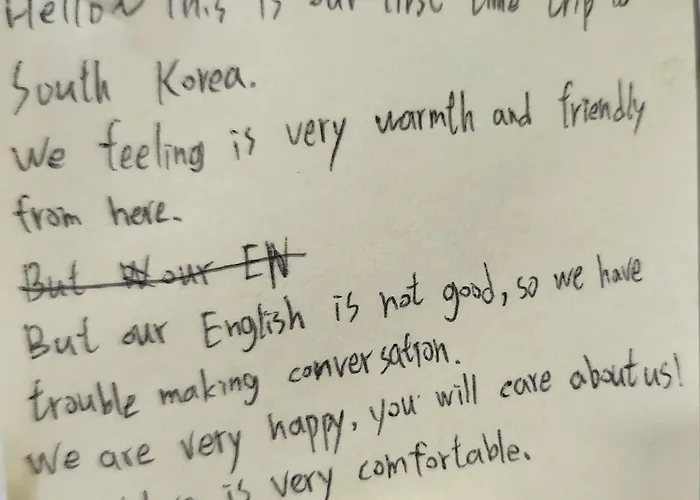 Hello~ This is our first time trip to
South Korea.
We feeling is very warmth and friendly
from here.
But W our EN
But our English is not good, so we have
trouble making conversation.
We are very happy, you will care about us!
is very comfortable.